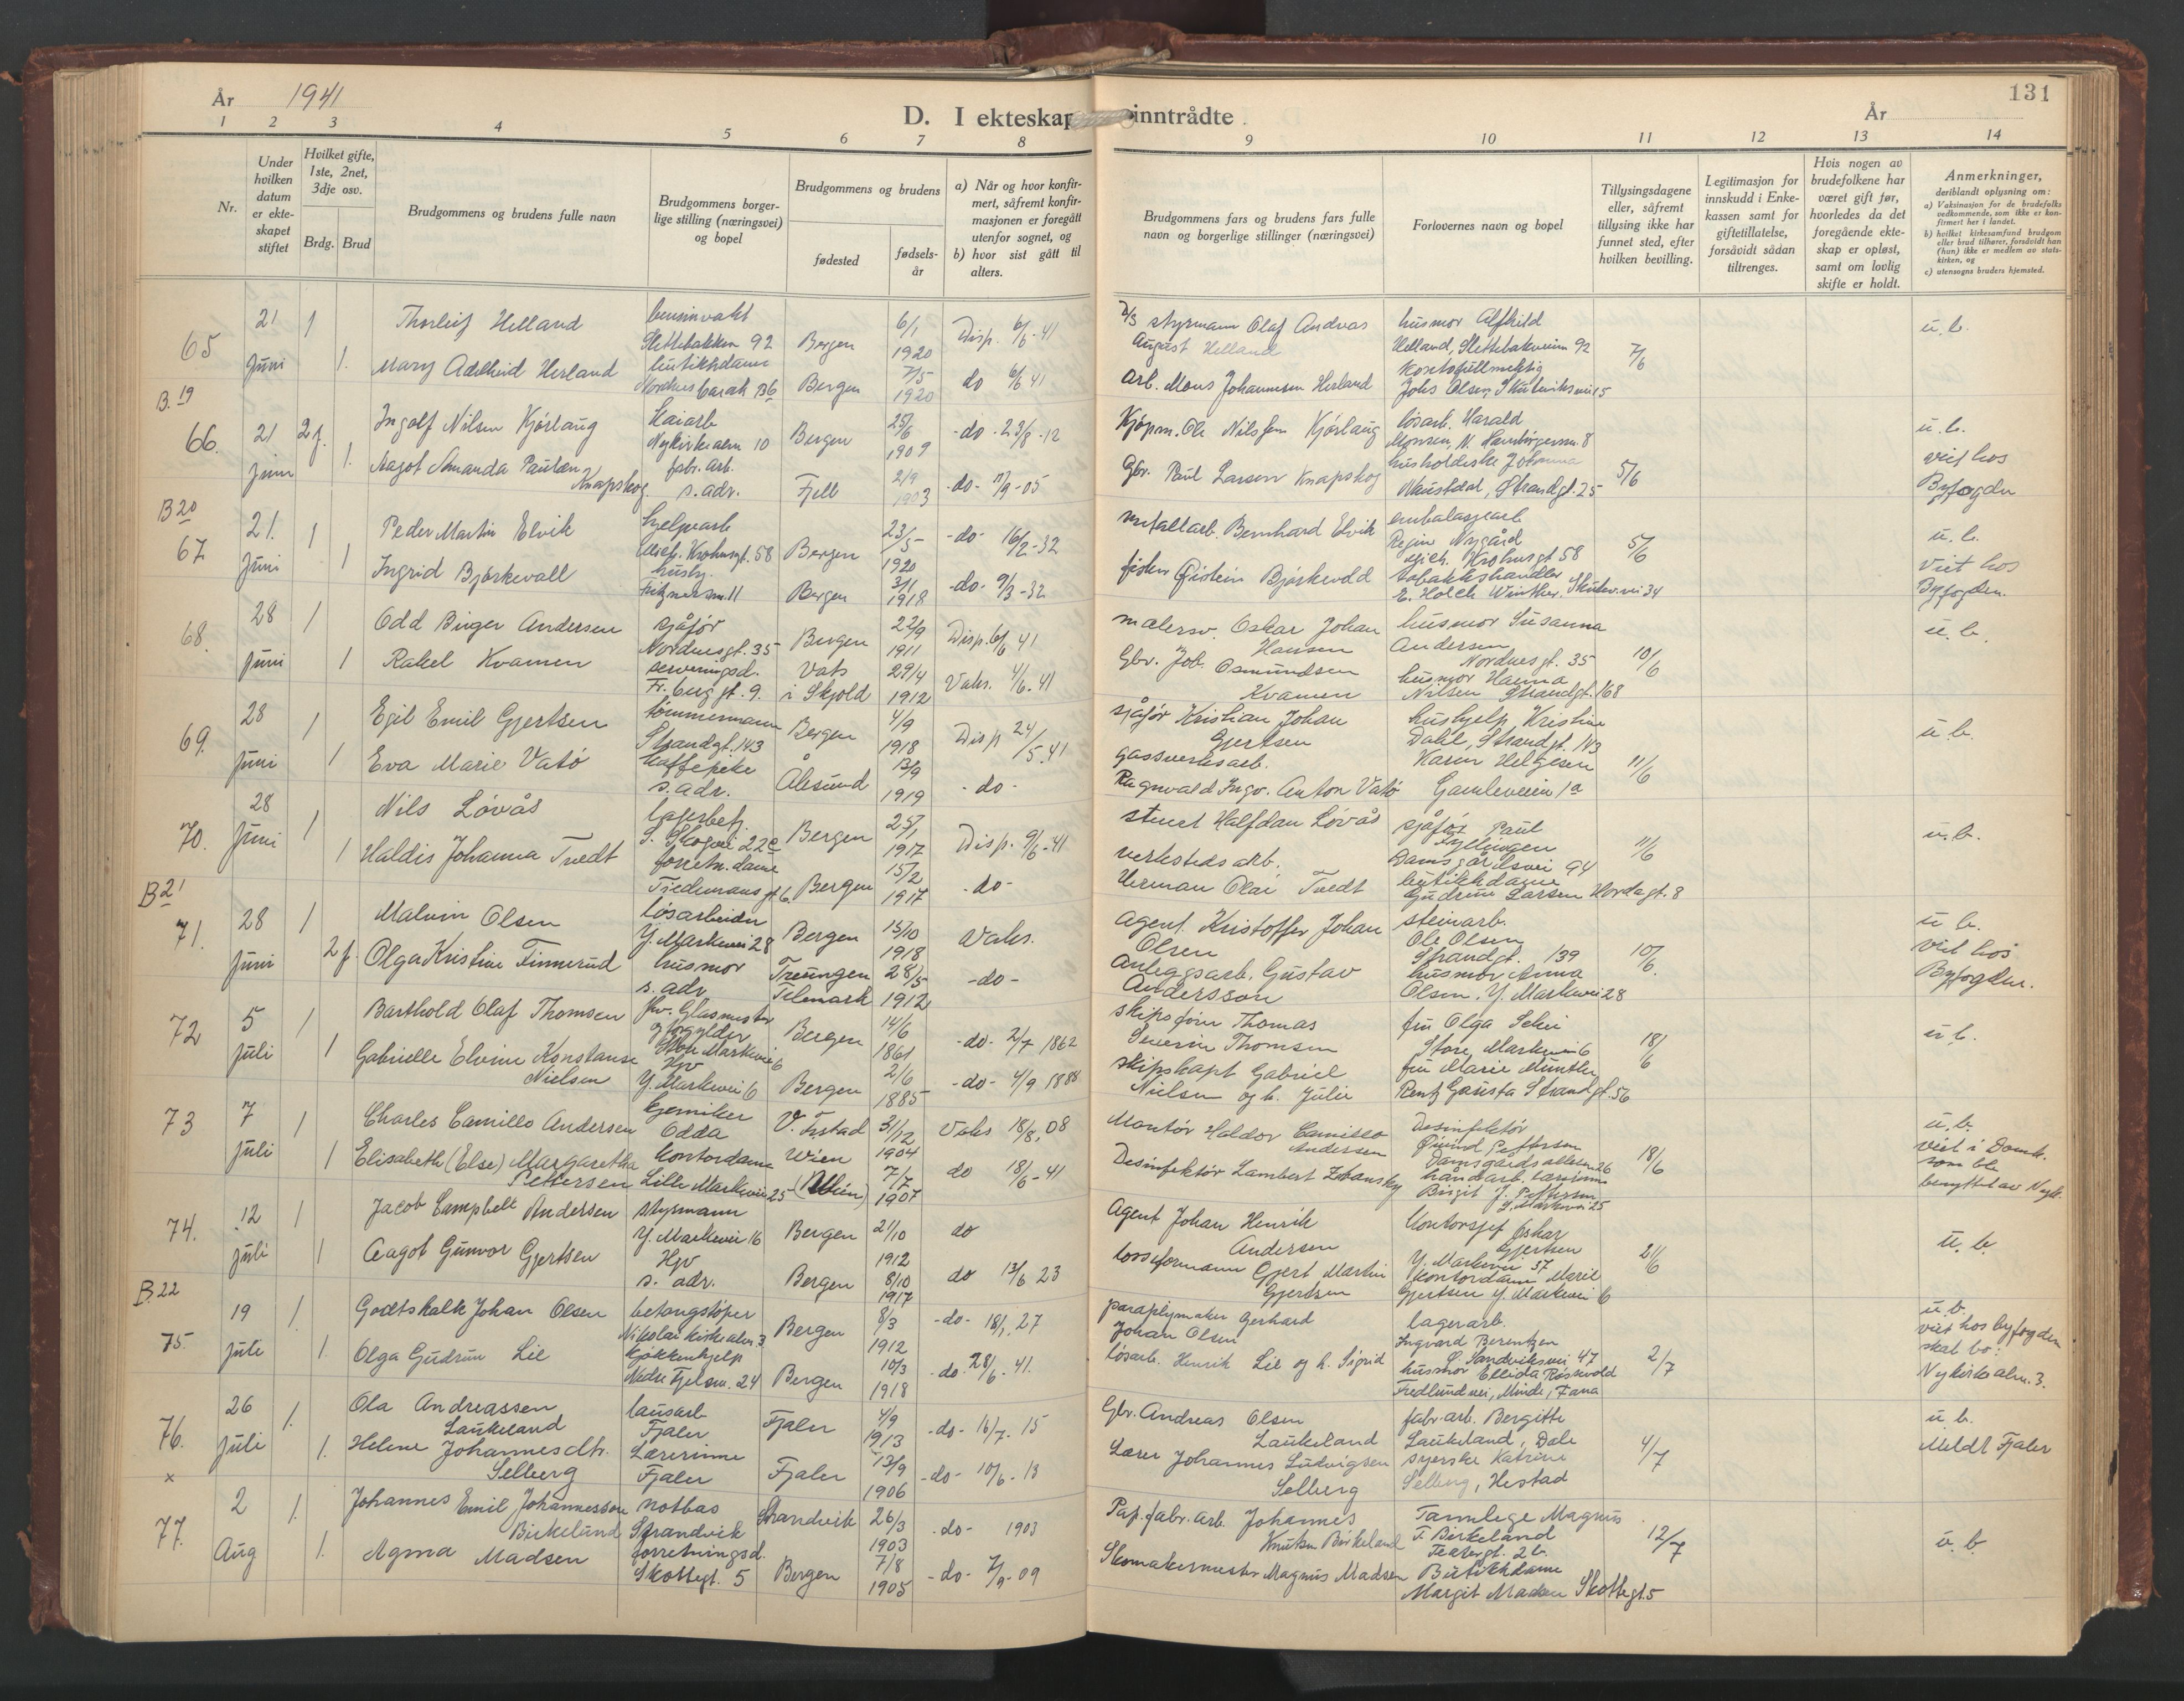 År 1941
D. I ekteskap inntrådte
År
131
1 2 3 4 5 6 7 8 9 10 11 12 13 14
Nr.
Under hvilken datum er ekte-skapet stiftet
Hvilket gifte, 1ste, 2net, 3dje osv.
Brdg. Brud
Brudgommens og brudens fulle navn
Brudgommens borger-lige stilling (næringsvei) og bopel
Brudgommens og brudens
fødested
fødsels-år
a) Når og hvor konfir-mert, såfremt konfir-masjonen er foregått utenfor sognet, og
b) hvor sist gått til alters.
Brudgommens fars og brudens fars fulle navn og borgerlige stillinger (næringsvei)
Forlovernes navn og bopel
Tillysingsdagene eller, såfremt tillysing ikke har funnet sted, efter hvilken bevilling.
Legitimasjon for innskudd i Enke-kassen samt for giftetillatelse, forsåvidt sådan tiltrenges.
Hvis nogen av brudefolkene har været gift før, hvorledes da det foregående ekte-skap er opløst, samt om lovlig skifte er holdt.
Anmerkninger,
deriblandt oplysning om:
a) Vaksinasjon for de brudefolks vedkommende, som ikke er kon-firmert her i landet.
b) hvilket kirkesamfund brudgom eller brud tilhører, forsåvidt han (hun) ikke er medlem av stats-kirken, og
c) utensogns bruders hjemsted.
65 21 Juni 1 Thorleif Helland bensinvakt Slettebakken 92 Bergen 6/1 1920 Disp. 6/6-41 styrmann Olaf Andreas August Helland husmor Alfhild Helland, Slettebakveien 92 7/6 u.b.
1. Mary Adelheid Herland butikkdame Bergen 7/5 1920 do 6/6 41 Arb. Mons Johannesen Herland kontorfullmektig Johs Olsen, Skuteviksvei 15
B.19
66. 21 Juni 2 f. Ingolf Nilsen Kjørlaug Kaiarb Nykirkealm 10 Bergen 25/6 1909 -do- 23/8-12 Kjøpm. Ole Nilssen Kjørlaug løsarb. Harald Monsen, N. Hamburgersm. 8 5/6 u.b.
1. Magot Amanda Paulsen Knapskog fabr. arb. s. adr. Fjell 2/9 1903 -do- 17/9-05 Gbr. Paul Larsen Knapskog husholderske Johanna Naustdal, Strandgt. 25 viet hos Byfogden
B 20
67 21. Juni 1 Peder Martin Elvik hjelpearb Krohnsgt. 58 Bergen 23/5 1920 -do- 16/2-32 metallarb. Bernhard Elvik embalasjearb Regine Nygård Krohnsgt 58 5/6 u.b.
1 Ingrid Bjørkevoll hush. Fitznersm. 11 Bergen 3/1 1918 -do- 9/3-32 fisker Øistein Bjørkevoll tobakkshandler E. Holck Winther. Skutev.vei 34 Viet hos Byfogden.
68. 28 Juni 1 Odd Birger Andersen sjåfør Nordnesgt. 35 Bergen 22/9 1911 Disp. 6/6 41 malersv. Oskar Johan Hansen husmor Susanna Andersen Nordnesgt. 35 10/6 u.b.
1 Rakel Kvamen serveringsd. Fr. berg gt. 9. Vats i Skjold 29/4 1912 Vaks. 4/6.41 Gbr. Job. Osmundsen Kvamen husmor Hanna Nilsen Strandgt. 168
69. 28 Juni 1 Egil Emil Gjertsen tømmermann Strandgt. 143 Bergen 4/9 1918 Disp 24/5.41 sjåfør Kristian Johan Gjertsen hushjelp Kristine Dahl, Strandgt. 143 11/6 u.b.
1 Eva Marie Vatø Kaffepike s. adr. Ålesund 13/9 1919 -do- gassverksarb. Ragnvald Ingv. Anton Vatø Karen Helgesen Gamleveien 1a
70. 28 Juni 1 Nils Løvås lagerbetj. S. Skogvei 22c Bergen 25/1 1917 Disp. 9/6-41 stuert Halfdan Løvås sjåfør Paul Gyllingen Damsgårdsvei 94 11/6 u.b.
1 Haldis Johanna Tvedt forretn. dame Tiedemans gt 6. Bergen 15/2 1917 -do- verkstedsarb. Herman Olai Tvedt butikkdame Gudrun Larsen Hordagt. 8
B 21
71. 28 Juni 1 Malvin Olsen løsarbeider Y. Markevei 28 Bergen 15/10 1918 Vaks. Agent. Kristoffer Johan Olsen steinarb. Ole Olsen Strandgt. 139 10/6. u b.
2 f. Olga Kristine Finnerud husmor s. adr Treungen Telemark 28/5 1912 -do- Anleggsarb. Gustav Andersson husmor Anna Olsen. Y. Markevei 28 viet hos Byfogden.
72 5 Juli 1 Barthold Olaf Thomsen fhv. Glasmester og forgylder Store Markevei 6 Bergen 14/6 1861 -do- 2/7 1862 skipsfører Thomas Severin Thomsen fru Olga Schei Store Markevei 6 18/6 u.b.
1 Gabrielle Elvine Konstanse Nielsen Hjv Y. Markevei 6 Bergen 2/6 1885 -do- 4/9 1888 skipskapt Gabriel Nielsen og h. Julie fru Marie Munthe Rentz Gausta Strandgt. 56
73 7 Juli 1 Charles Camillo Andersen kjemiker Odda V. Fristad 31/12 1904 Vaks 18/8, 08 Montør Haldor Camillo Andersen Desinfektør Øivind Pettersen Damsgårdsalleen 26 18/6 u.b.
1 Elisabeth (Else) Margaretha Pettersen Kontordame Lille Markevei 25 Wien (Wien) 7/7 1907 do 18/6-41 Desinfektør Lambert håndarb. lærerinne Birgit J. Pettersen L. Markevei 25 viet i Domk. som ble benyttet av Nykk.
74. 12 Juli 1 Jacob Campbell Andersen styrmann Y. Markevei 16 Bergen 21/10 1912 do Agent Johan Henrik Andersen Kontorsjef Oskar Gjertsen Y. Markevei 37 21/6 u.b.
1 Aagot Gunvor Gjertsen Hjv s. adr. Bergen 8/10 1917 do 13/6 23 losseformann Gjert Martin Gjertsen kontordame Marie Gjertsen Y Markevei 6
B.22
75. 19 Juli 1. Godtskalk Johan Olsen betongstøper Nikolaikirkealm. 3 Bergen 8/3 1912 -do- 18/1. 27 paraplymaker Gerhard Johan Olsen lagerarb. Ingvard Berentzen S. Sandviksvei 47 2/7 u.b.
1. Olga Gudrun Lie kjøkkenhjelp Nedre Fjelsm. 24 Bergen 10/3 1918 -do- 28/6.41. løsarb. Henrik Lie og h. Sigrid husmor Ellida Røsevold Fredlundvei, Minde, Fana viet hos byfogden skal bo: Nykirkealm. 3.
76. 26 Juli 1. Ola Andreassen Laukeland lausarb Fjaler Fjaler 4/9 1913 -do- 16/7-15 Gbr. Andreas Olsen Laukeland fabr. arb. Bergitte Laukeland, Dale 4/7 u b.
1. Helene Johannesdtr. Selberg Lærerinne Fjaler Fjaler 13/9 1906 -do- 10/6-13 Lærer Johannes Ludvigsen Selberg syerske Katrine Selberg, Hestad Meldt Fjaler
x
77. 2 Aug 1. Johannes Emil Johannessen Birkelund notbas Strandvik Strandvik 26/3 1903 -do- 1903 Pap. fabr. arb. Johannes Knutsen Birkeland Tannlege Magnus F. Birkeland Teatergt. 2b. 12/7 u. b.
1. Agma Madsen forretningsd. Skottegt. 5 Bergen 7/8 1905 -do- 7/9-09 Skomakermester Magnus Madsen Butikkdame Margit Madsen Skottegt. 5